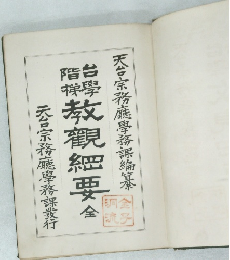 天台宗務廳學務課編纂
台學
階梯
教觀綱要 全
天台宗務廳學務課發行